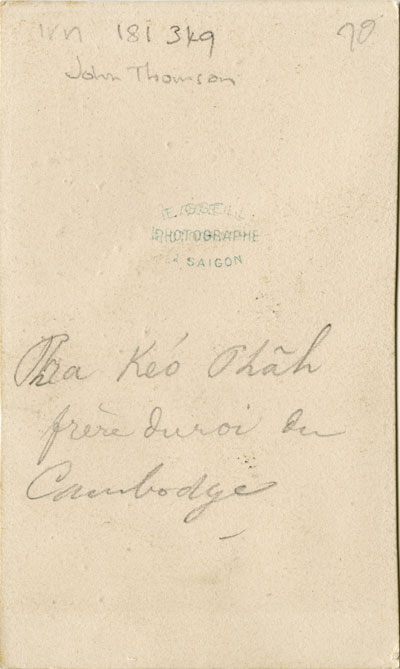 irn 181 3kg
70
John Thomson
E. GSELL
PHOTOGRAPHE
à SAIGON
Phra Kéo Phãh
frère du roi du
Cambodge